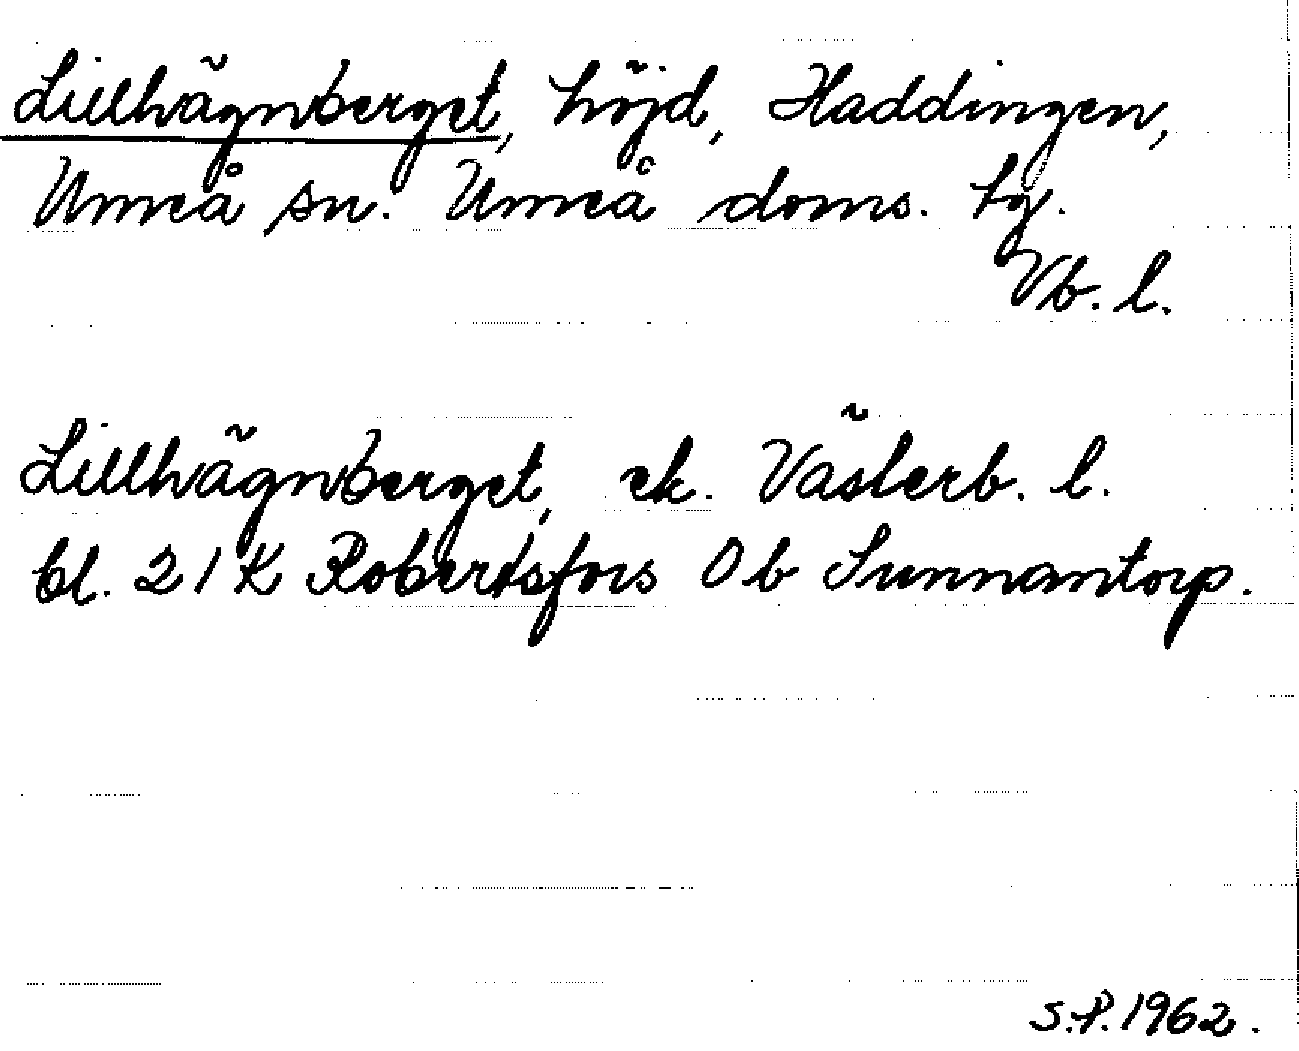 Lillhägnberget, höjd, Haddingen,
Umeå sn. Umeå doms. hg.
Vb. l.
Lillhägnberget, ek. Västerb. l.
bl. 21 K Robertsfors 0 b Sunnantorp.
S.P. 1962.